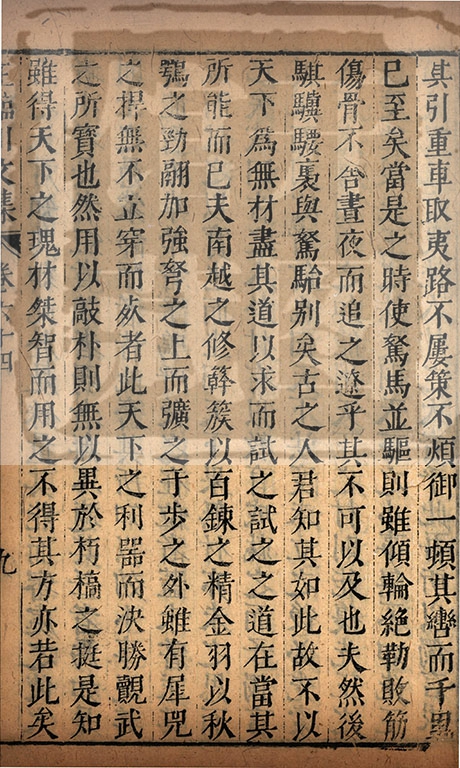 其引重車取夷路不屢策不煩御一頓其轡而千里
已至矣當是之時使駑馬並驅則雖傾輪絶勒敗筋
傷骨不舍晝夜而追之遼乎其不可以及也夫然後
騏驥騕褭與駑駘别矣古之人君知其如此故不以
天下爲無材盡其道以求而試之試之之道在當其
所能而已夫南越之修簳簇以百鍊之精金羽以秋
鶚之勁翮加強弩之上而彍之千步之外雖有犀兕
之捍無不立穿而死者此天下之利器而決勝覿武
之所寶也然用以敲朴則無以異於朽槁之挺是知
雖得天下之瑰材桀智而用之不得其方亦若此矣
王臨川文集 卷六十四 九